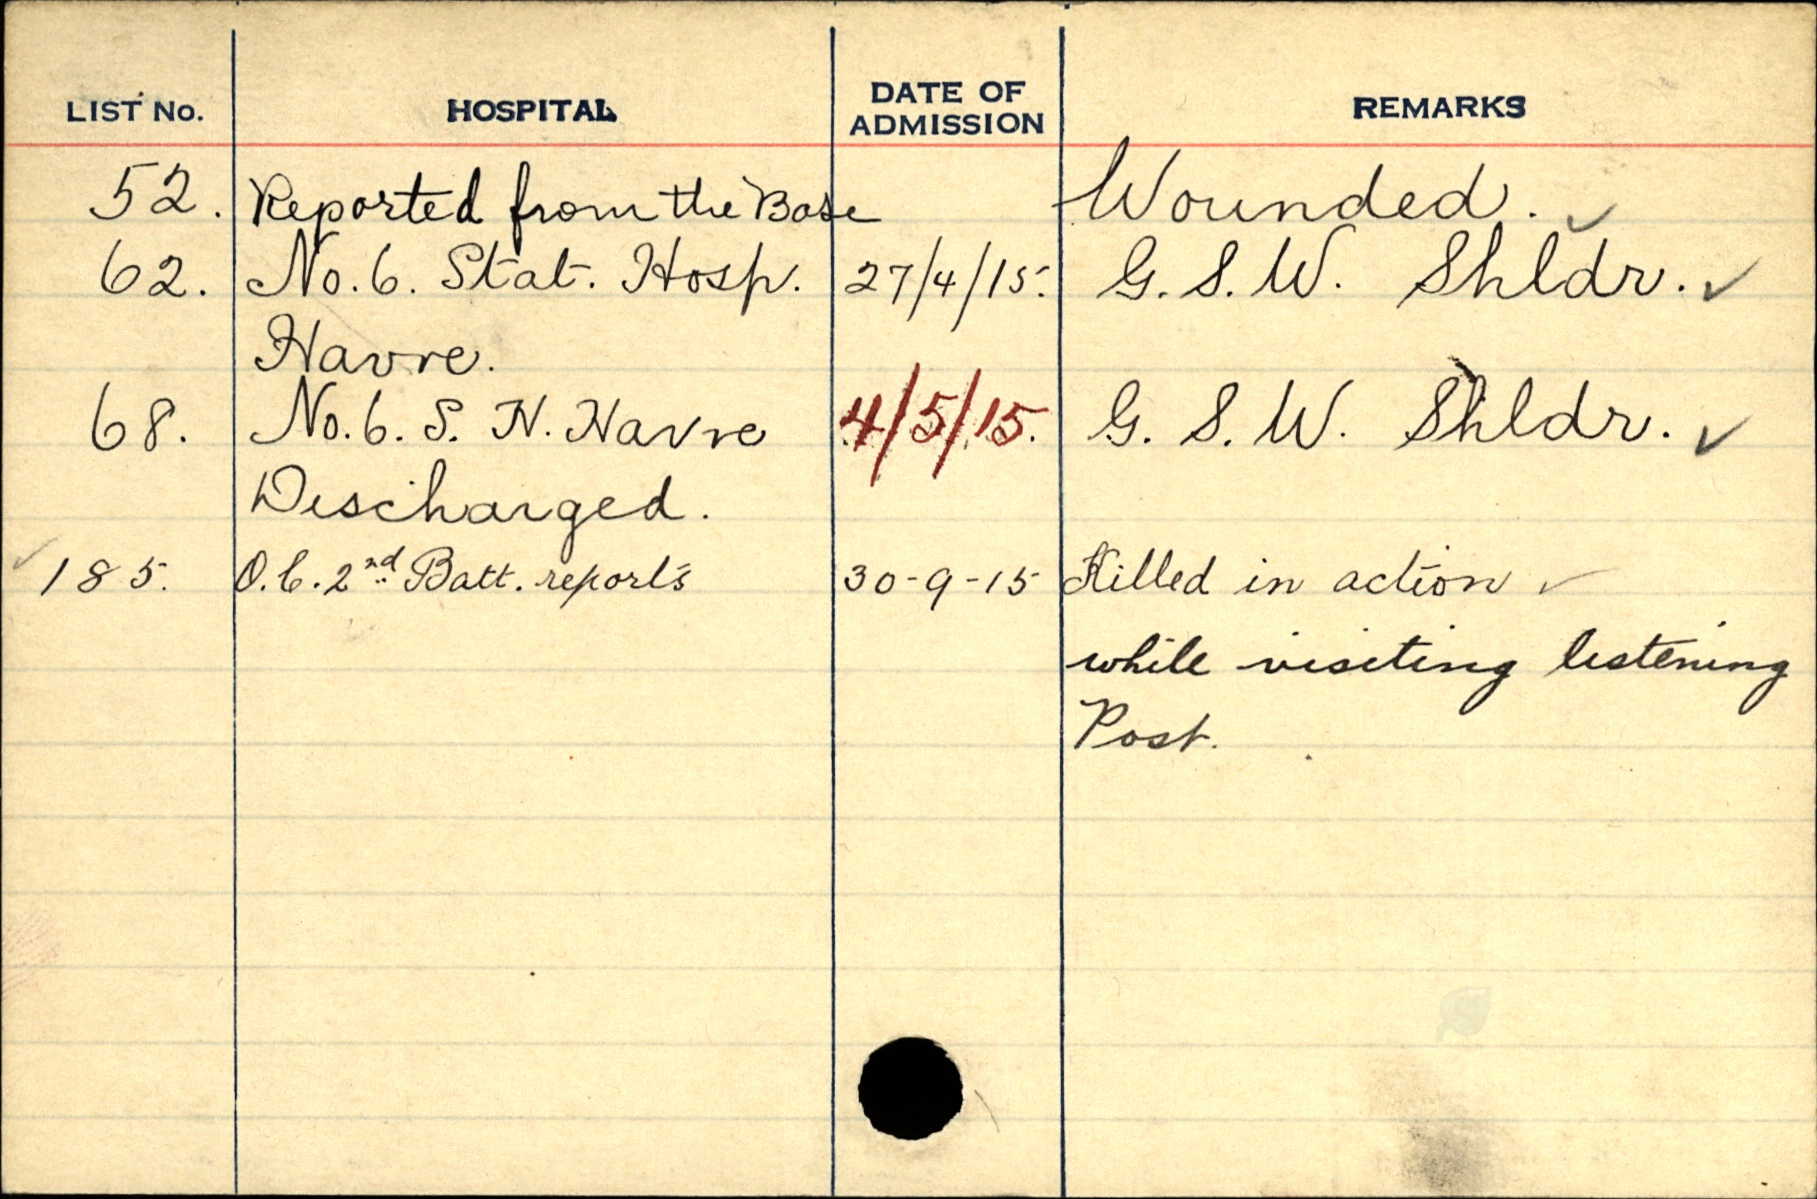 LIST No. HOSPITAL DATE OF ADMISSION REMARKS
52. Reported from the Base Wounded.
62. No. 6. Stat. Hosp. 27/4/15. G. S. W. Shldr.
Havre.
68. No. 6. S. H. Havre 4/5/15. G. S. W. Shldr.
Discharged.
185. O.C. 2nd Batt. reports 30-9-15 Killed in action
while visiting listening
Post.